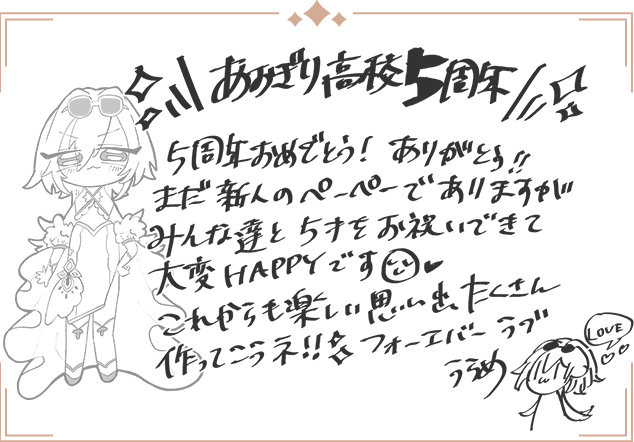 あおぎり高校5周年
5周年おめでとう！ ありがとう!!
まだ新人のペーペーでありますが
みんな達と5才をお祝いできて
大変HAPPYです
これからも楽しい思い出たくさん
作ってこうネ!! フォーエバーラブ
うるめ
LOVE